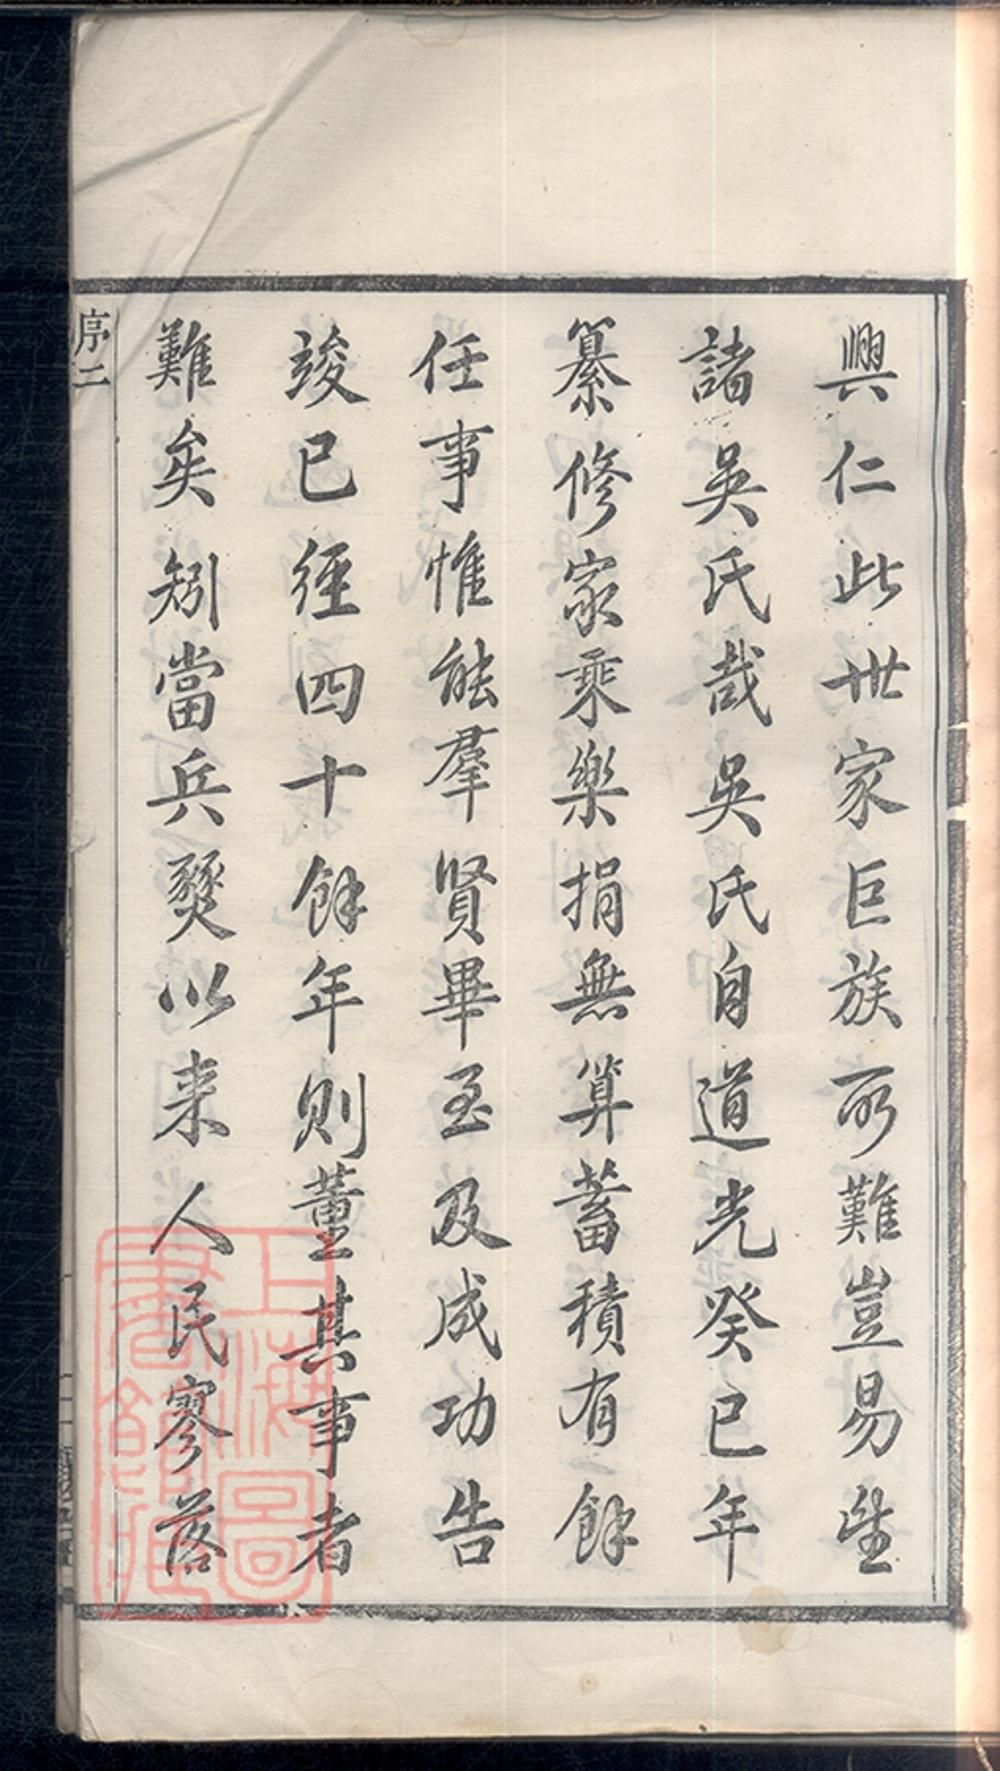 興仁此世家巨族所難豈易望
諸吳氏哉吳氏自道光癸巳年
纂修家乘樂捐無算蓄積有餘
任事惟能羣賢畢至及成功告
竣已經四十餘年則董其事者
難矣矧當兵燹以来人民寥落
序二
上海圖書館藏